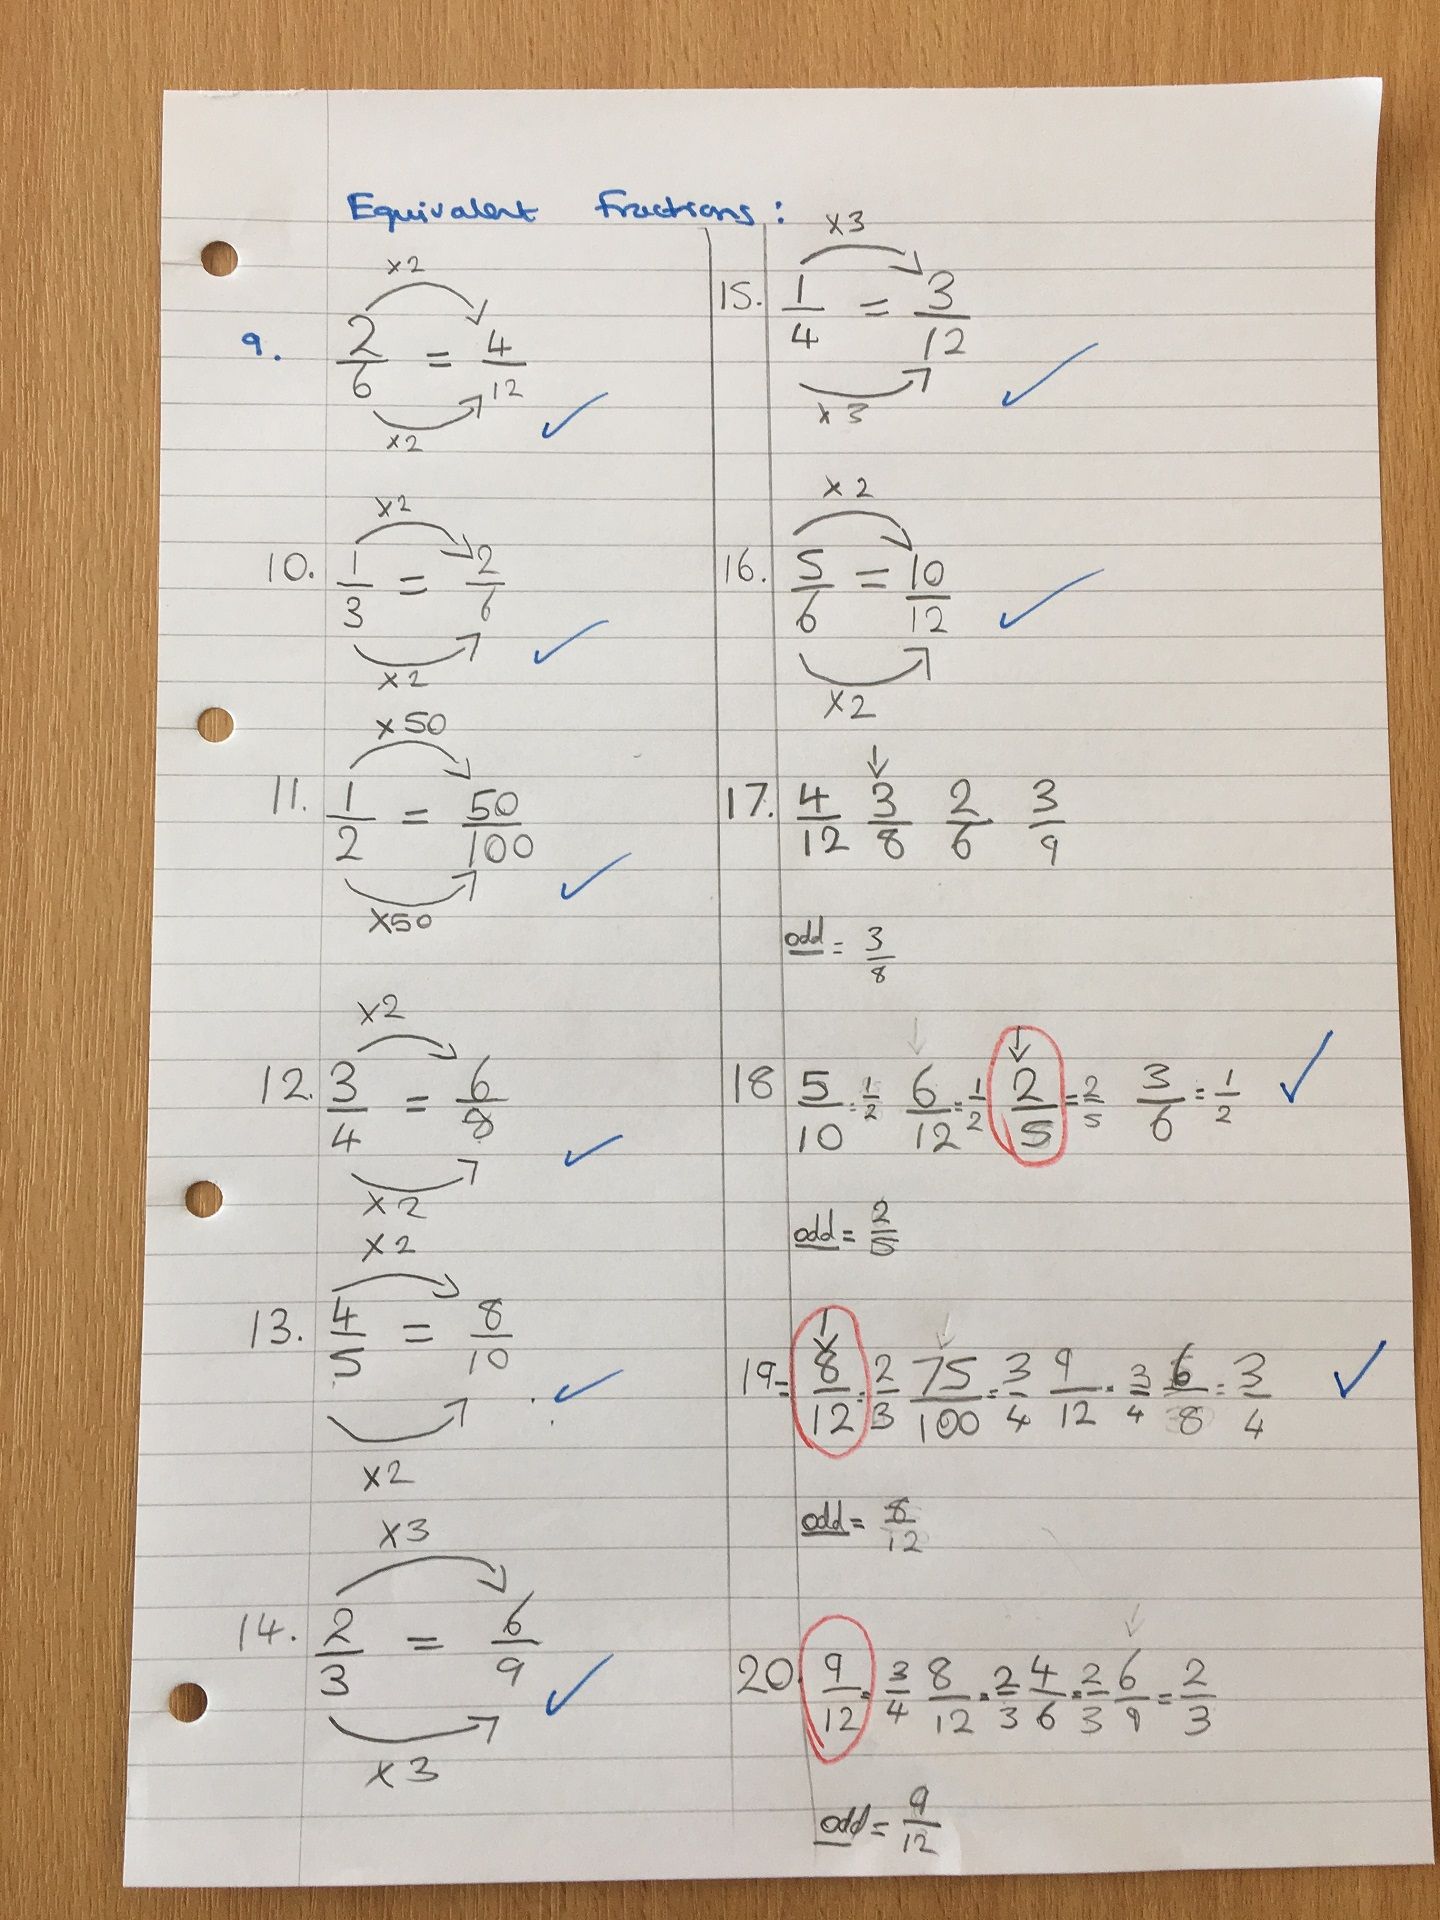 Equivalent Fractions:
x2
9. 2/6 = 4/12
x2
x2
10. 1/3 = 2/6
x2
x50
11. 1/2 = 50/100
x50
x2
12. 3/4 = 6/8
x2
x2
13. 4/5 = 8/10
x2
x3
14. 2/3 = 6/9
x3
x3
15. 1/4 = 3/12
x3
x2
16. 5/6 = 10/12
x2
17. 4/12 3/8 2/6 3/9
odd = 3/8
18 5/10 = 1/2 6/12 = 1/2 2/5 = 2/5 3/6 = 1/2
odd = 2/5
19= 8/12 = 2/3 75/100 = 3/4 9/12 = 3/4 6/8 = 3/4
odd = 8/12
20. 9/12 = 3/4 8/12 = 2/3 4/6 = 2/3 6/9 = 2/3
odd = 9/12